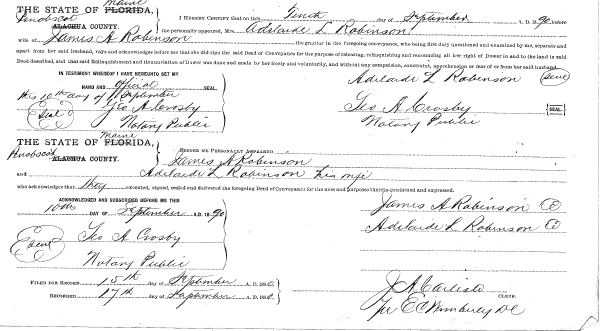 Maine
THE STATE OF FLORIDA,
Penobscot
ALACHUA COUNTY.
I HEREBY CERTIFY that on this Tenth day of September A. D. 1890, before
me personally appeared, Mrs. Adelaide L Robinson
wife of James A Robinson the grantor in the foregoing conveyance, who being first duly questioned and examined by me, separate and
apart from her said husband, says and acknowledges before me that she did sign the said Deed of Conveyance for the purpose of releasing, relinquishing and renouncing all her right of Dower in and to the land in said
Deed described, and that said Relinquishment and Renunciation of Dower was done and made by her freely and voluntarily, and without any compulsion, constraint, apprehension or fear of or from her said husband.
IN TESTIMONY WHEREOF I HAVE HEREUNTO SET MY
HAND AND official SEAL
this 10th day of September
Geo A Crosby
Seal
Notary Public
Adelaide L Robinson (Seal)
Geo A Crosby SEAL
Notary Public
Maine
THE STATE OF FLORIDA,
Penobscot
ALACHUA COUNTY.
BEFORE ME PERSONALLY APPEARED
James A Robinson
and Adelaide L Robinson his wife
who acknowledged that they executed, signed, sealed and delivered the foregoing Deed of Conveyance for the uses and purposes therein contained and expressed.
ACKNOWLEDGED AND SUBSCRIBED BEFORE ME THIS
10th DAY OF September A.D. 1890
Seal
Geo A Crosby
Notary Public
James A Robinson
Adelaide L Robinson
FILED FOR RECORD 15th day of September A. D. 1890.
RECORDED 17th day of September A. D. 1890.
J A Carlisle CLERK.
Per E C Wimberly DC